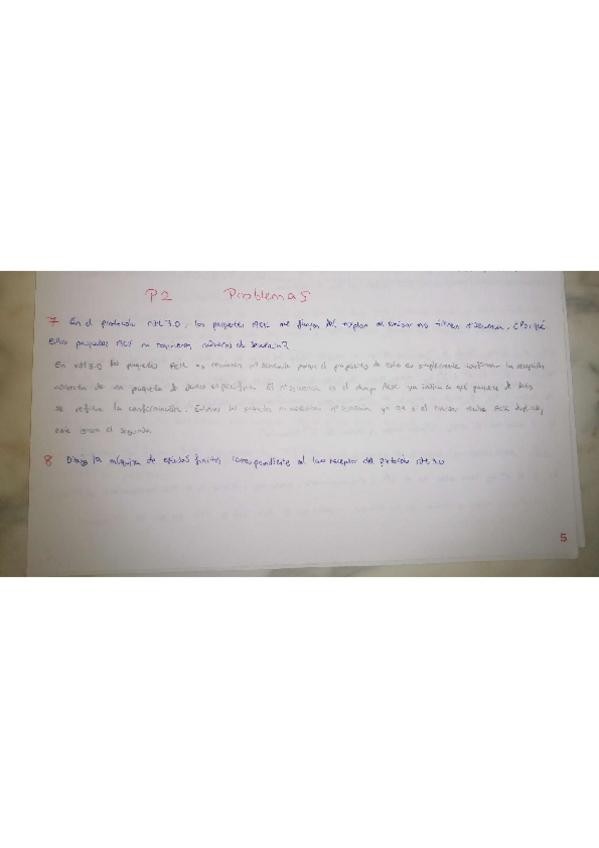 P2 Problemas
7 En el protocolo rdt 3.0, los paquetes ACK que fluyen del receptor al emisor no tienen nº secuencia. ¿Por qué
estos paquetes ACK no requieren números de secuencia?
En rdt 3.0 los paquetes ACK no requieren nº secuencia porque el propósito de estos es simplemente confirmar la recepción
correcta de un paquete de datos específico. El nº secuencia en el campo ACK ya indica a qué paquete de datos
se refiere la confirmación. los nº secuencia ya que si el emisor recibe ACK duplicado,
este ignora el segundo.
8 Dibuje la máquina de estados finitos correspondiente al lado receptor del protocolo rdt 3.0
5